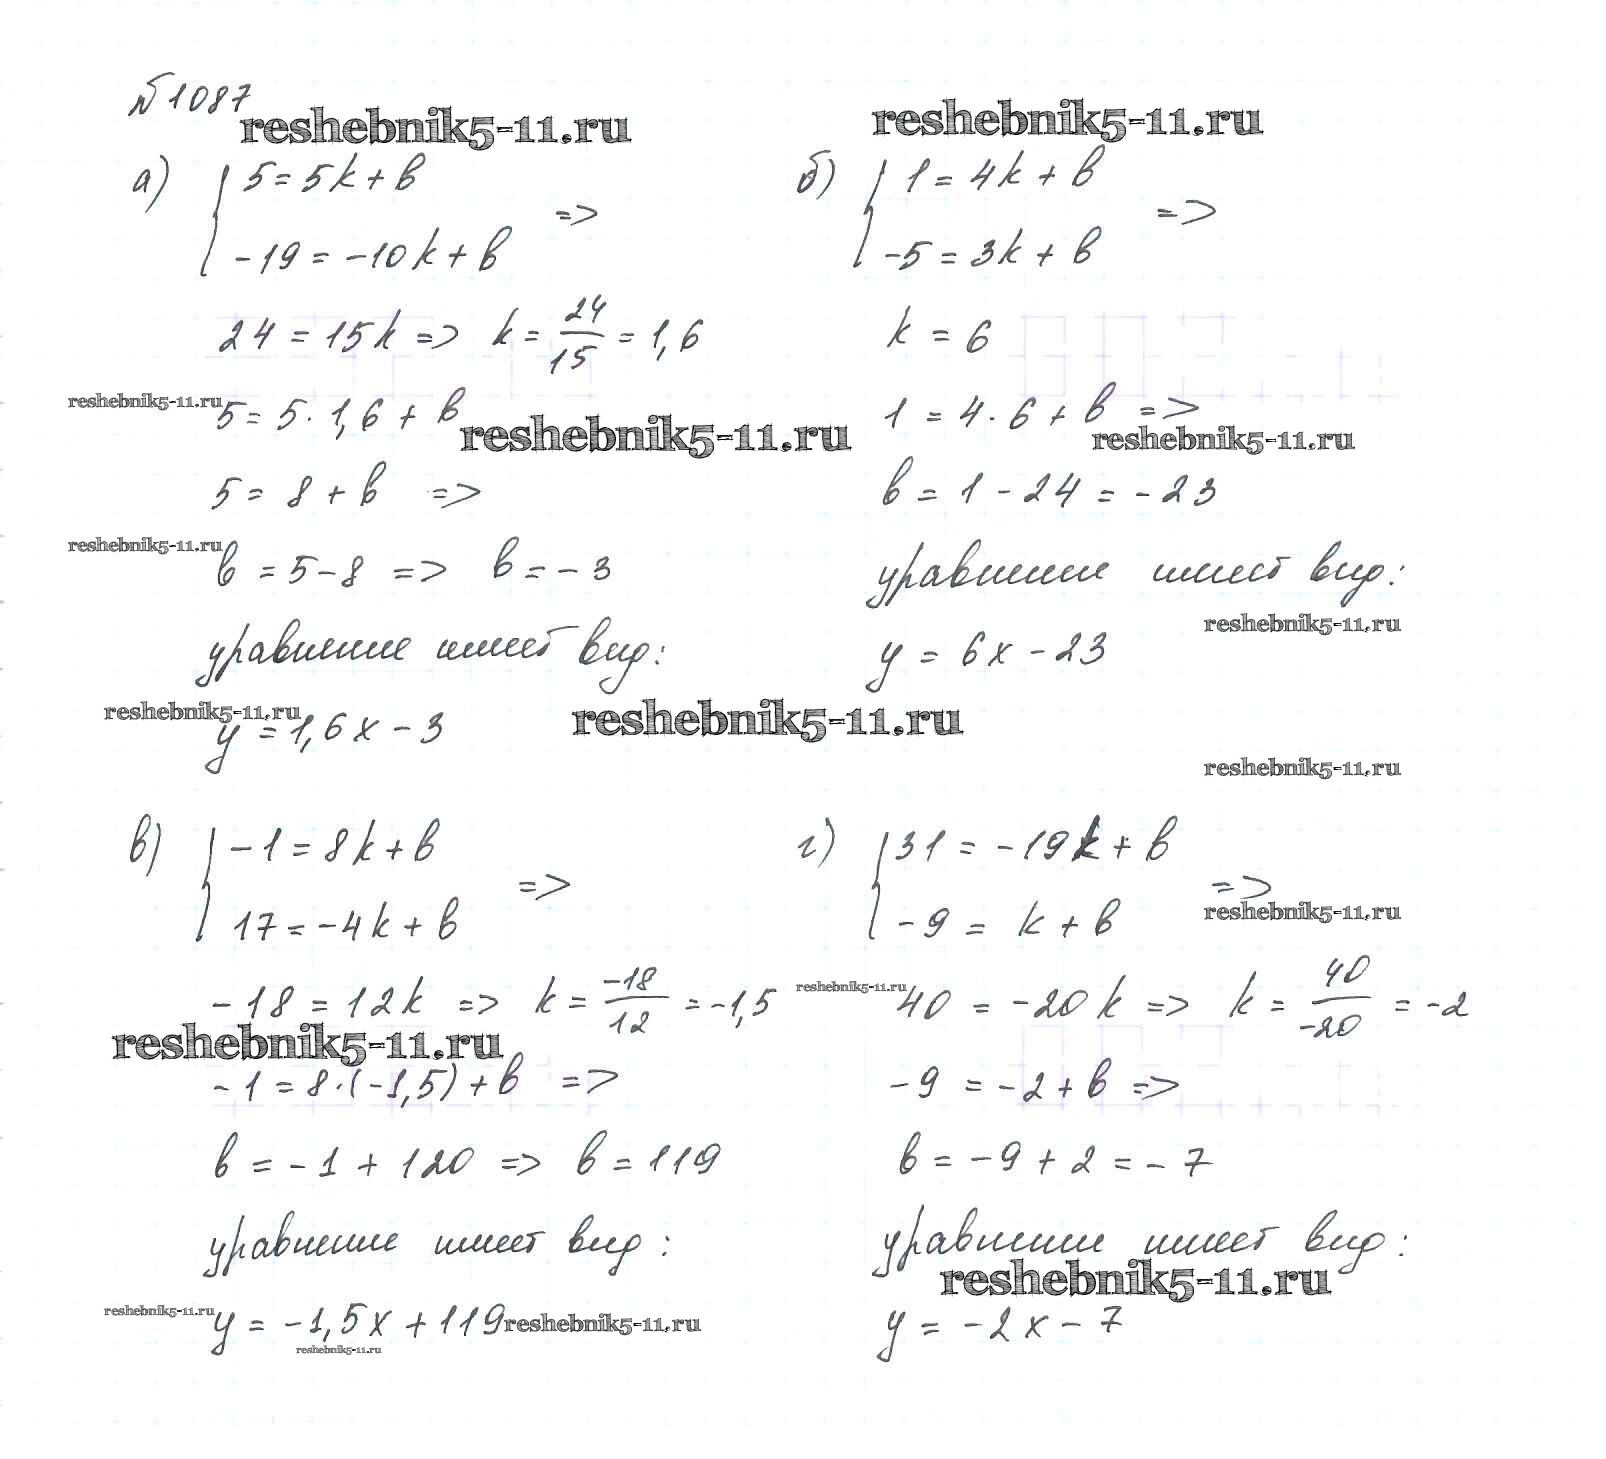 №1087
reshebnik5-11.ru
reshebnik5-11.ru
а) { 5 = 5k + b
-19 = -10k + b =>
24 = 15k => k = 24/15 = 1,6
reshebnik5-11.ru
5 = 5 · 1,6 + b
reshebnik5-11.ru
5 = 8 + b =>
reshebnik5-11.ru
b = 5 - 8 => b = -3
уравнение имеет вид:
reshebnik5-11.ru
y = 1,6x - 3
reshebnik5-11.ru
б) { 1 = 4k + b
-5 = 3k + b =>
k = 6
1 = 4 · 6 + b =>
reshebnik5-11.ru
b = 1 - 24 = -23
уравнение имеет вид:
reshebnik5-11.ru
y = 6x - 23
reshebnik5-11.ru
в) { -1 = 8k + b
17 = -4k + b =>
-18 = 12k => k = -18/12 = -1,5
reshebnik5-11.ru
-1 = 8 · (-1,5) + b =>
b = -1 + 120 => b = 119
уравнение имеет вид:
reshebnik5-11.ru
y = -1,5x + 119
reshebnik5-11.ru
reshebnik5-11.ru
г) { 31 = -19k + b
-9 = k + b =>
reshebnik5-11.ru
reshebnik5-11.ru
40 = -20k => k = 40/-20 = -2
-9 = -2 + b =>
b = -9 + 2 = -7
уравнение имеет вид:
reshebnik5-11.ru
y = -2x - 7